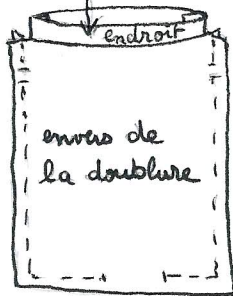 endroit
envers de
la doublure